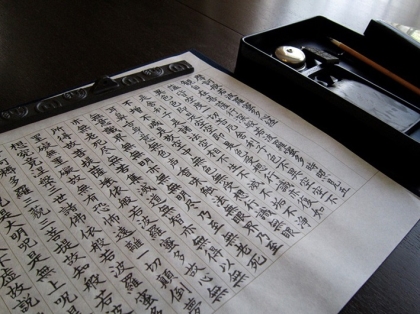 般若波羅蜜多時照見五
皆空度一切苦厄舍利子色不異空空
不異色色即是空空即是色受想行識亦復如
是舍利子是諸法空相不生不滅不垢不淨
不增不減是故空中無色無受想行識無眼
耳鼻舌身意無色聲香味觸法無眼界乃至
無意識界無無明亦無無明盡乃至無老死
亦無老死盡無苦集滅道無智亦無得以無
所得故菩提薩埵依般若波羅蜜多故心無
罣礙無罣礙故無有恐怖遠離一切顛倒夢
想究竟涅槃三世諸佛依般若波羅蜜多
得阿耨多羅三藐三菩提故知般若波
是大明呪是無上呪
不虚故説